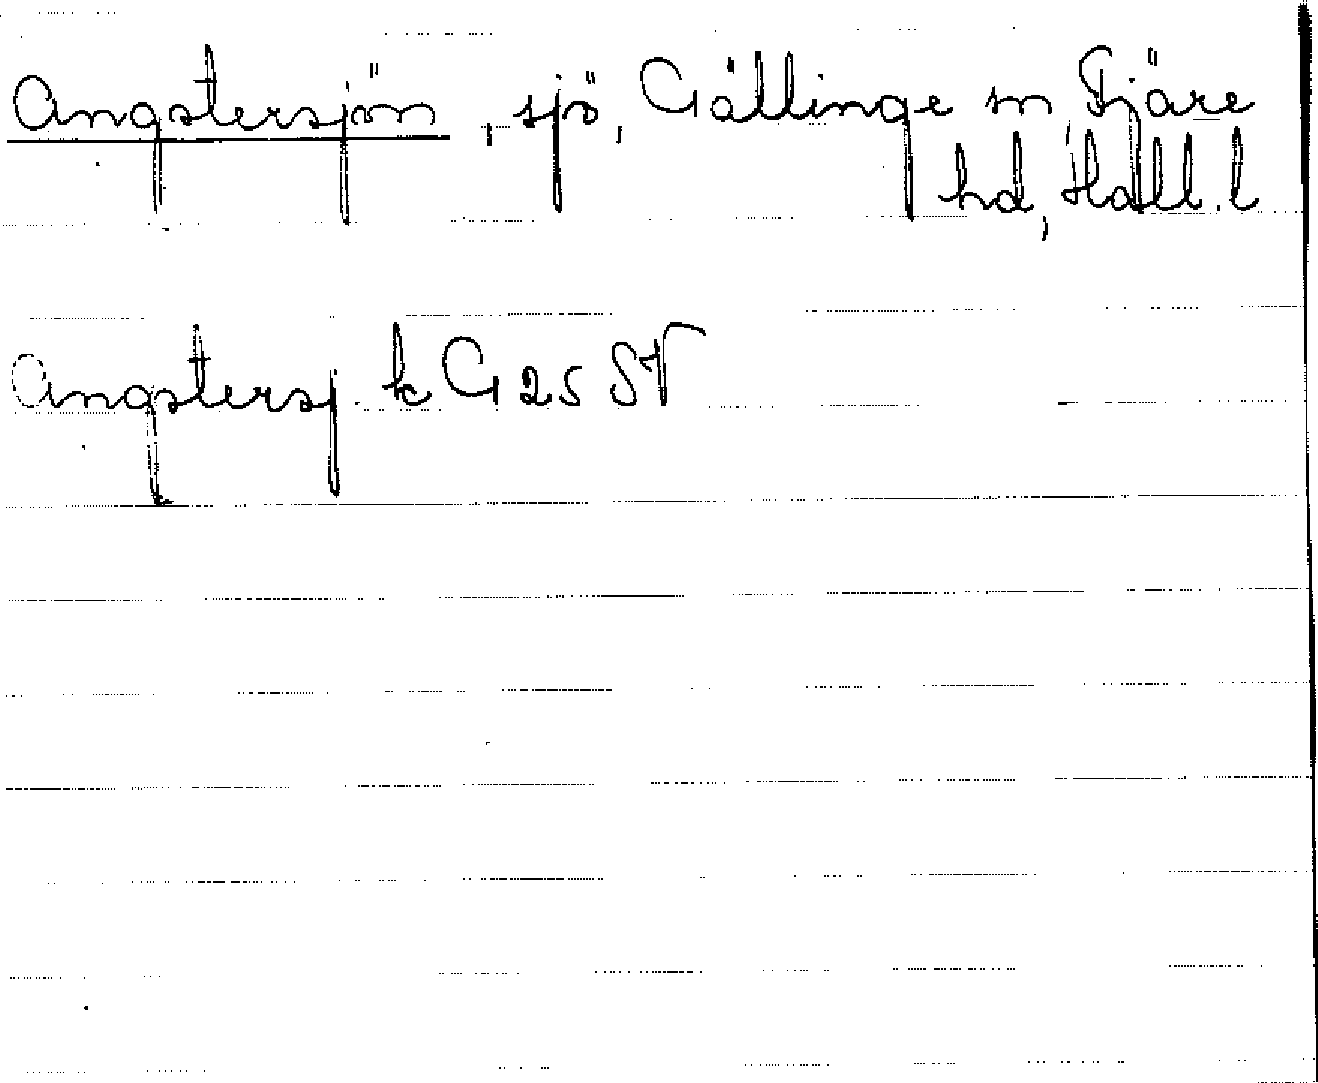 Angstersjön, sjö, Gällinge sn Fjäre
hd, Hall. l
Angstersj. k G 25 SV